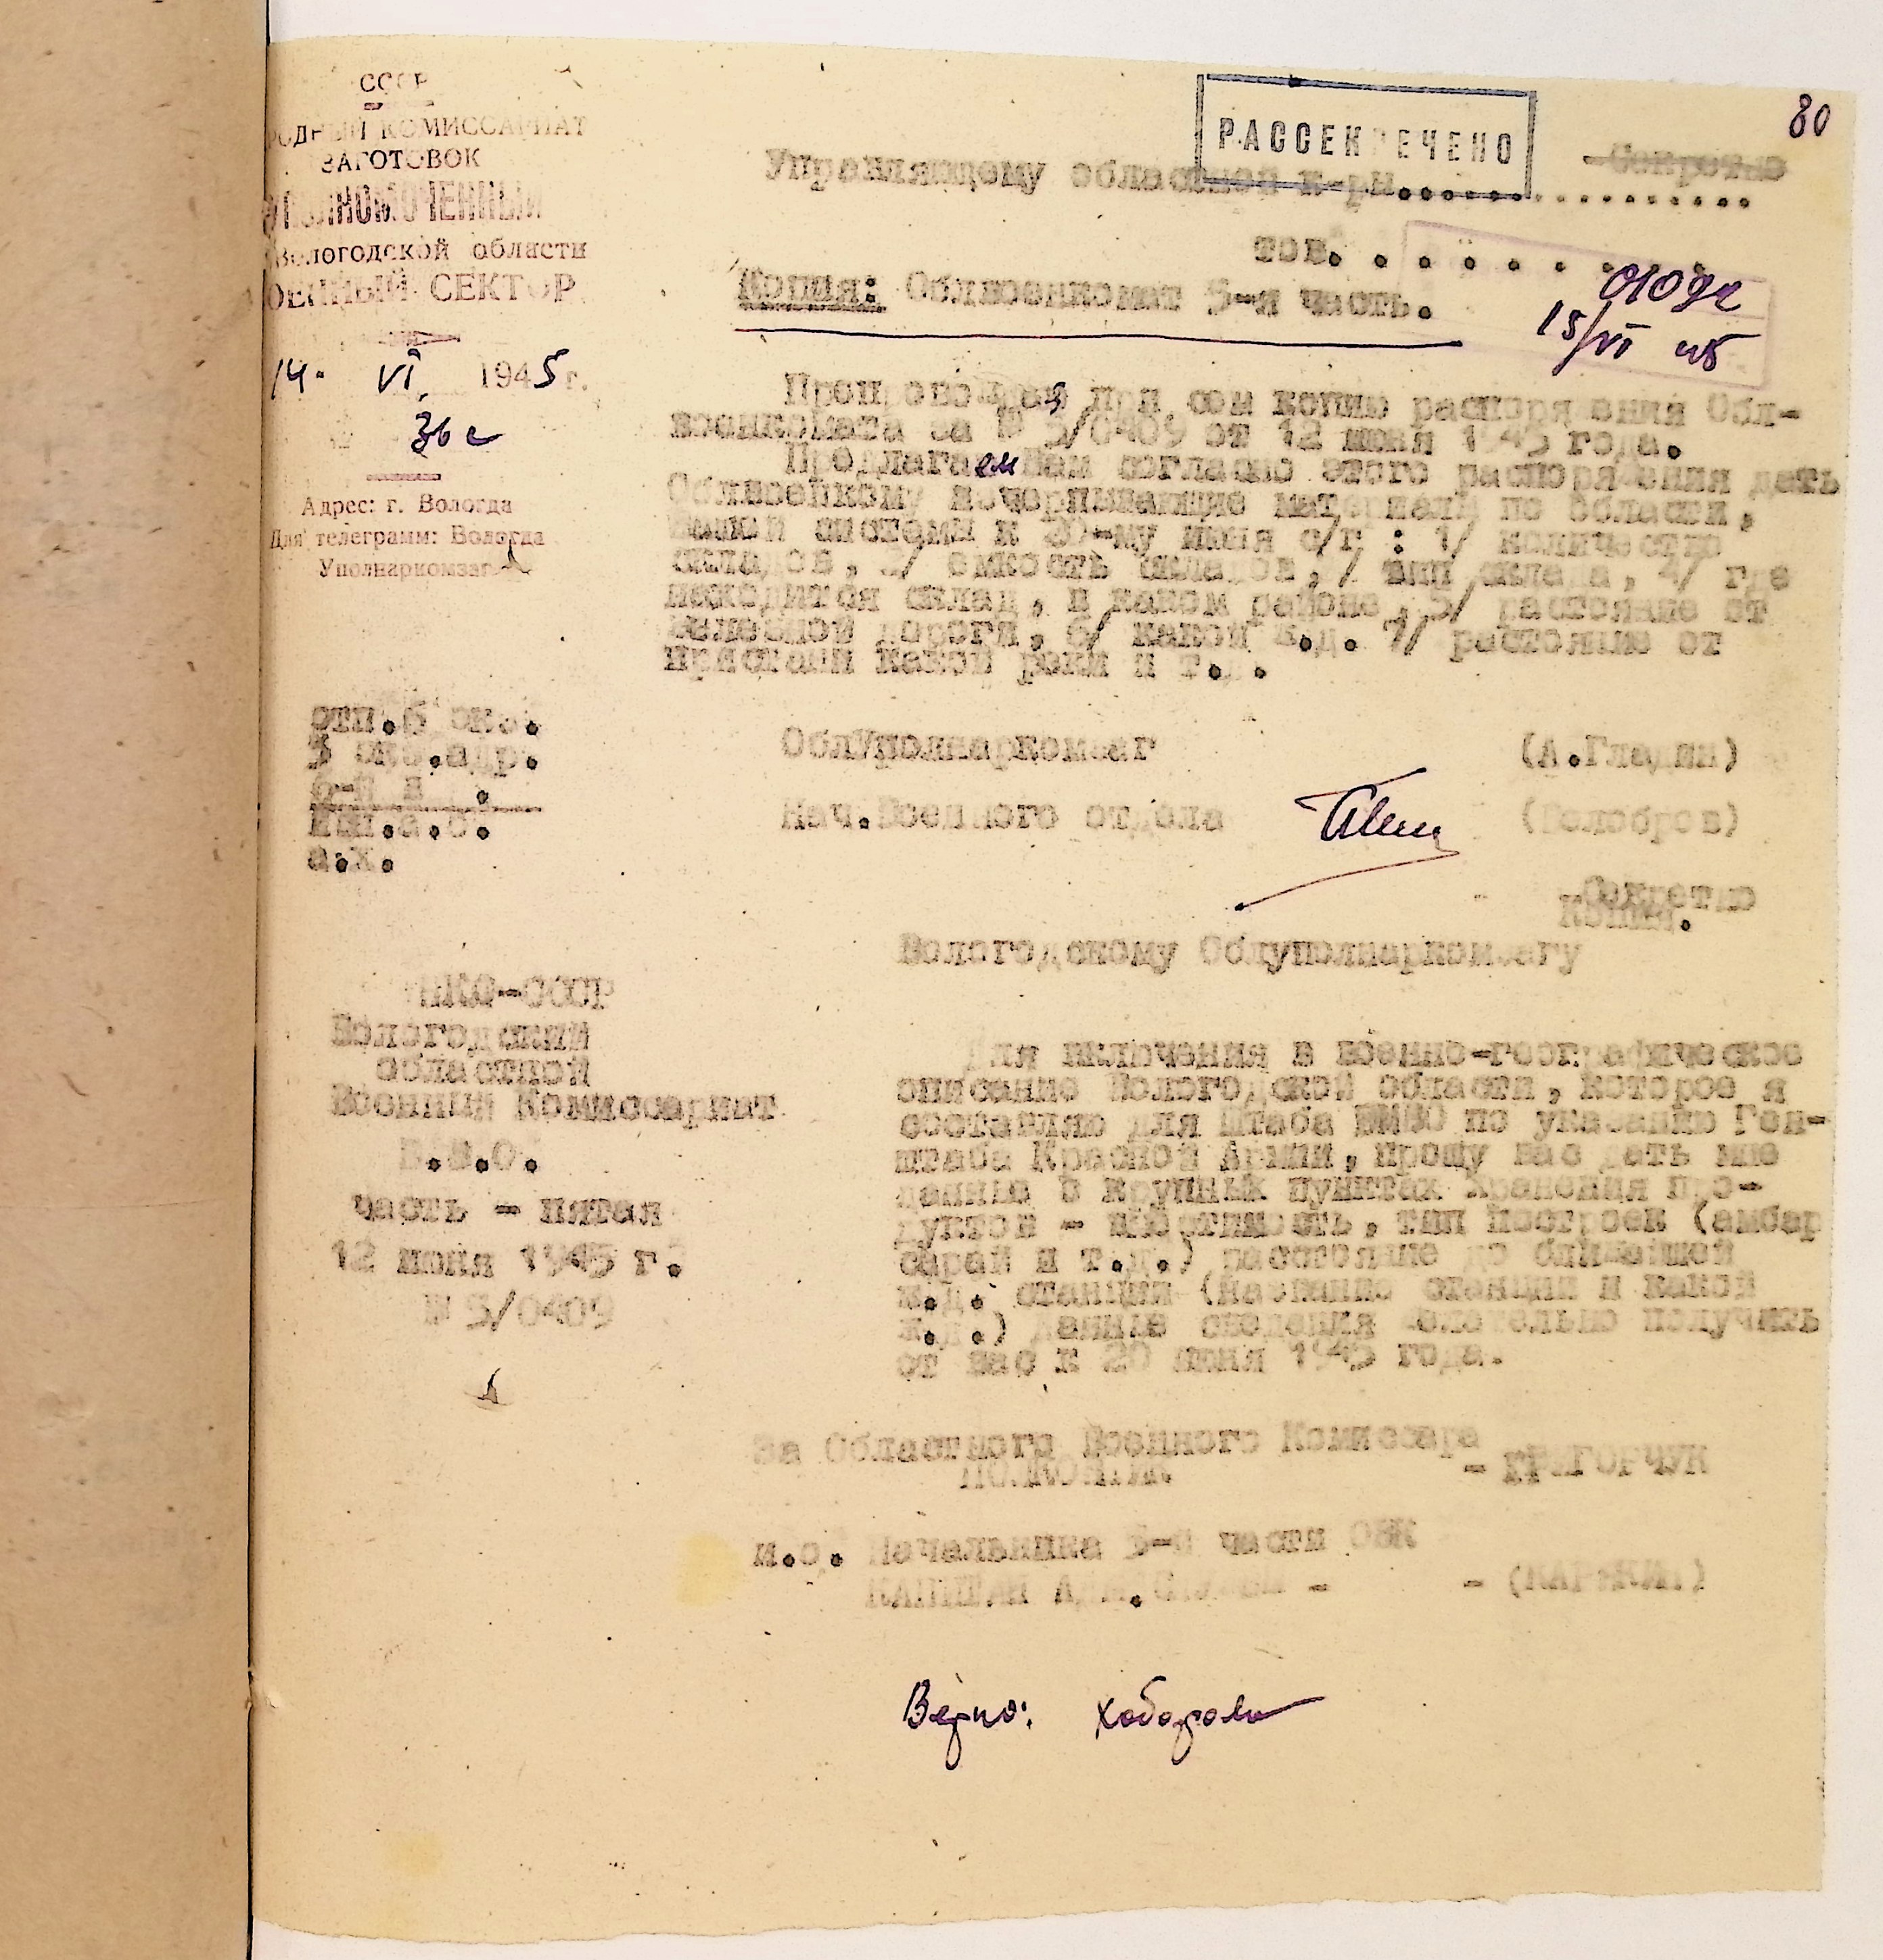 80
СССР
РОДНЫЙ КОМИССАРИАТ
ЗАГОТОВОК
УПОЛНОМОЧЕННЫЙ
Вологодской области
ОЕННЫЙ СЕКТОР
14. VI 1945 г.
36 с
Адрес: г. Вологда
Для телеграмм: Вологда
Уполнаркомзаг
РАССЕКРЕЧЕНО
Секретно
Управляющему областной к-ры..................
тов. . . . . . . . . .
Копия: Облвоенкомат 5-я часть.
15/VI 45
Препровождаем при сем копию распоряжения Обл-
военкомата за № 5/0409 от 12 июня 1945 года.
Предлагаем Вам согласно этого распоряжения дать
Облвоенкому исчерпывающие материалы по области,
вашей системы к 20-му июня с/г : 1/ количество
складов, 2/ емкость складов, / тип склада, 4/ где
находится склад, в каком районе, 5/ растояние от
железной дороги, 6/ какой ж.д. 7/ растояние от
пристани какой реки и т.д.
отп.6 экз.
5 экз.адр.
6-й в
а.х.
ОблУполнаркомзаг (А.Гладин)
Нач.Военного отдела (Белобров)
Секретно
Копия.
Вологодскому Облуполнаркомзагу
НКО-СССР
Вологодский
областной
Военный Комиссариат
часть - пятая
12 июня 1945 г.
№ 5/0409
Для включения в военно-географическое
описание Вологодской области, которое я
составляю для Штаба по указанию Ген-
штаба Красной Армии, прошу вас дать мне
данные о крупных пунктах хранения про-
дуктов - вместимость, тип построек (амбар
сарай и т.д.) расстояние до ближайшей
ж.д. станции (название станции и какой
ж.д.) данные сведения желательно получить
от вас к 20 июня 1945 года.
За Областного Военного Комиссара
ПОЛКОВНИК - ГРИГОРЧУК
и.о. Начальника 5-й части ОВК
КАПИТАН Адм.Службы - -
Верно: